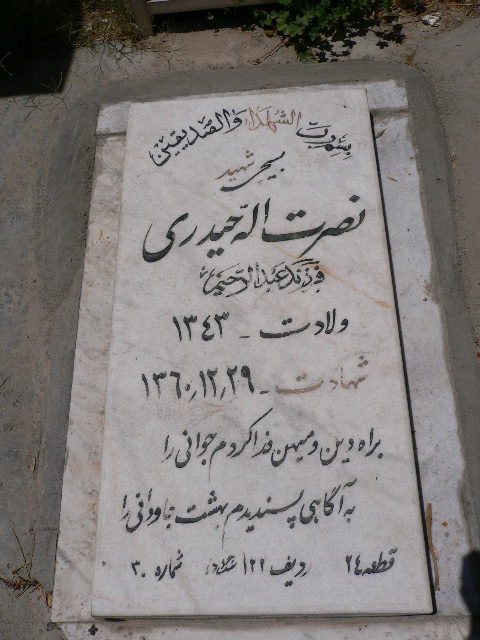 بسم رب الشهداء والصدیقین
بسیجی شهید
نصرت اله حیدری
فرزند عبدالرحیم
ولادت - ۱۳۴۳
شهادت - ۱۳۶۰٫۱۲٫۲۹
براه دین و میهن فدا کردم جوانی را
به آگاهی پسندیدم بهشت جاودانی را
قطعه ۲۴ ردیف ۱۲۲ شماره ۳۰